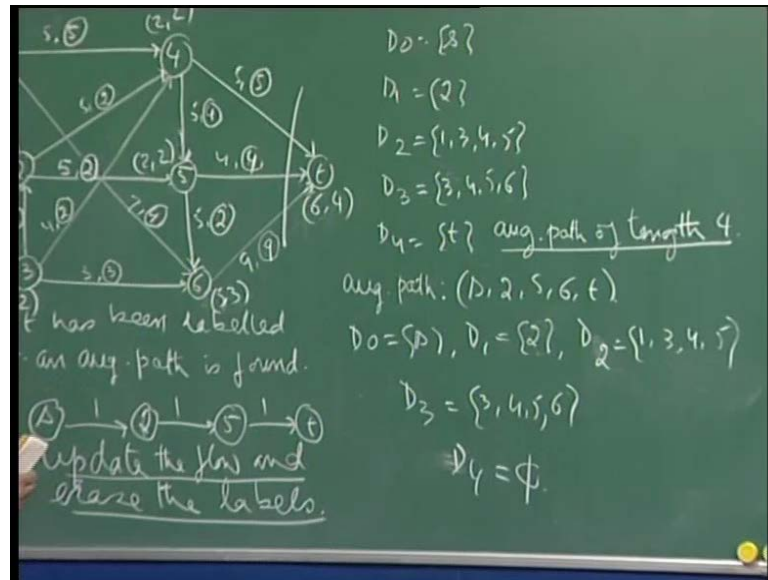 (2, 2)
5, 5
4
5, 5
5, 2
5, 4
5, 2
(2, 2)
5
4, 4
t
(6, 4)
4, 2
5, 2
3
3, 3
6
(3, 3)
9, 9
t has been labelled
an aug. path is found.
s 1 2 1 5 1 t
update the flow and
erase the labels.
D0 = {s}
D1 = {2}
D2 = {1, 3, 4, 5}
D3 = {3, 4, 5, 6}
D4 = {t} aug. path of length 4.
aug. path: (s, 2, 5, 6, t)
D0 = {s}, D1 = {2}, D2 = {1, 3, 4, 5}
D3 = {3, 4, 5, 6}
D4 = ϕ.